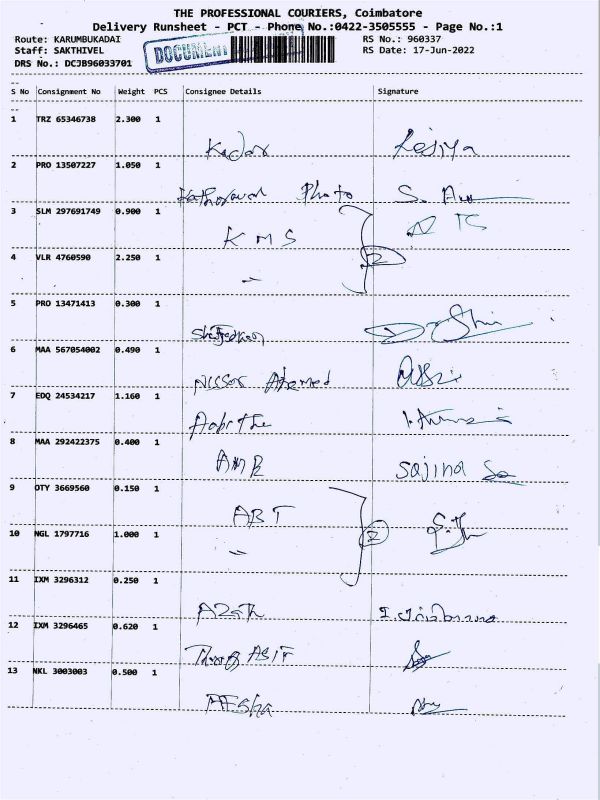 THE PROFESSIONAL COURIERS, Coimbatore
Delivery Runsheet - PCT - Phone No.:0422-3505555 - Page No.:1
Route: KARUMBUKADAI RS No.: 960337
Staff: SAKTHIVEL RS Date: 17-Jun-2022
DOCUMENT
DRS No.: DCJB96033701
S No Consignment No Weight PCS Consignee Details Signature
1 TRZ 65346738 2.300 1
Kadar
2 PRO 13507227 1.050 1
Photo
3 SLM 297691749 0.900 1
KMS
4 VLR 4760590 2.250 1
2
5 PRO 13471413 0.300 1
6 MAA 567054002 0.490 1
Nissar Ahamed
7 EDQ 24534217 1.160 1
8 MAA 292422375 0.400 1
AMR Sajina
9 OTY 3669560 0.150 1
ABT
10 NGL 1797716 1.000 1
2
11 IXM 3296312 0.250 1
Azath
12 IXM 3296465 0.620 1
ASIF
13 NKL 3003003 0.500 1
AFsha